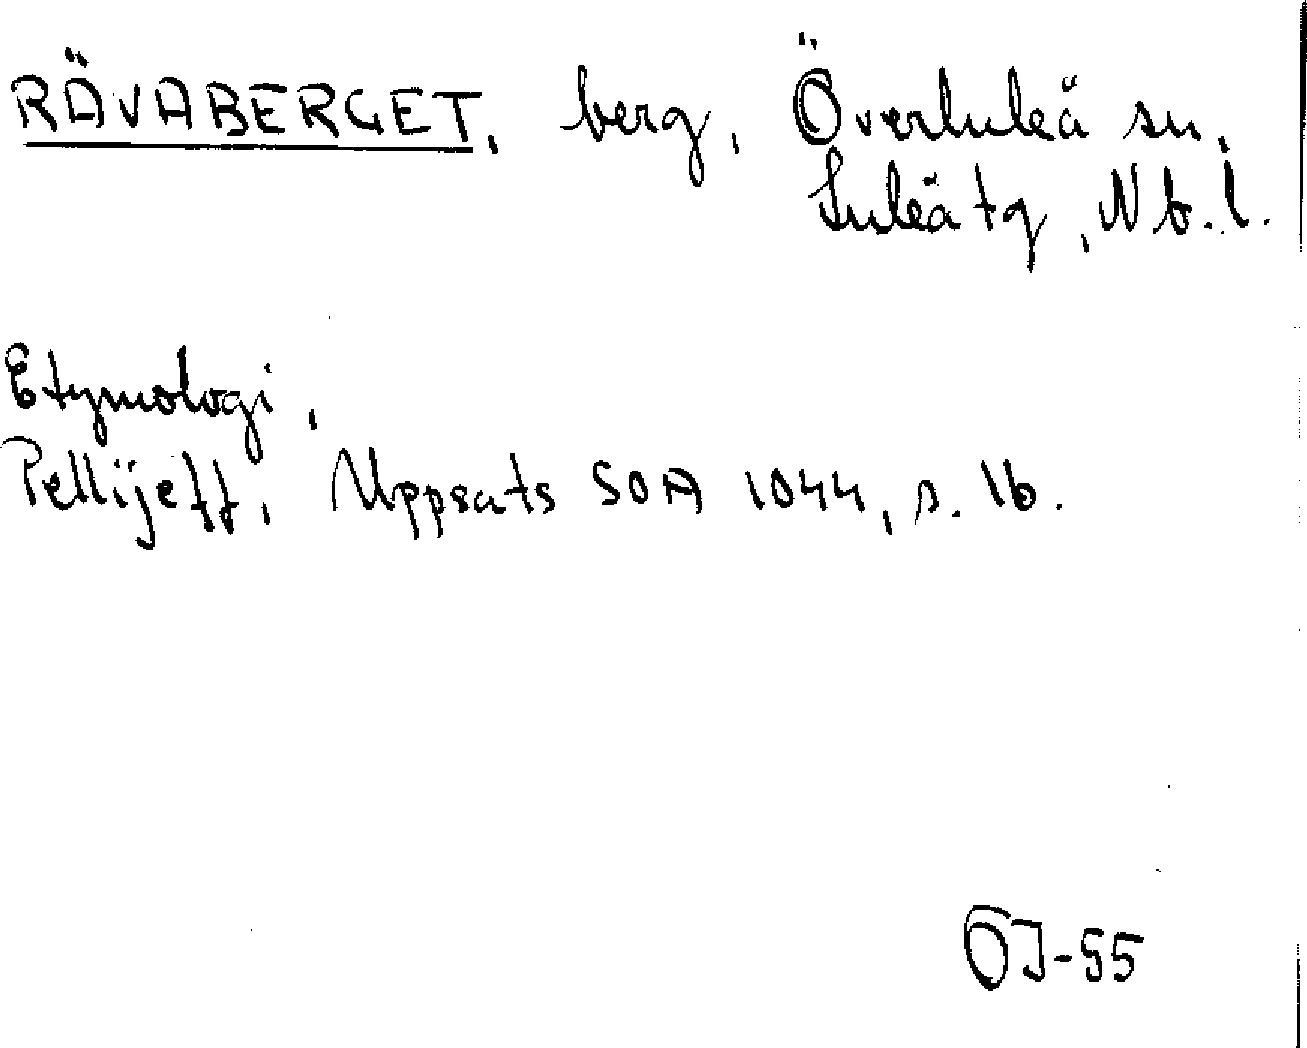 RÄVABERGET, berg, Överluleå sn,
Luleå tg, Nb. l.
Etymologi,
Pellijeff, Uppsats SOA 1044, s. 16.
OJ-55